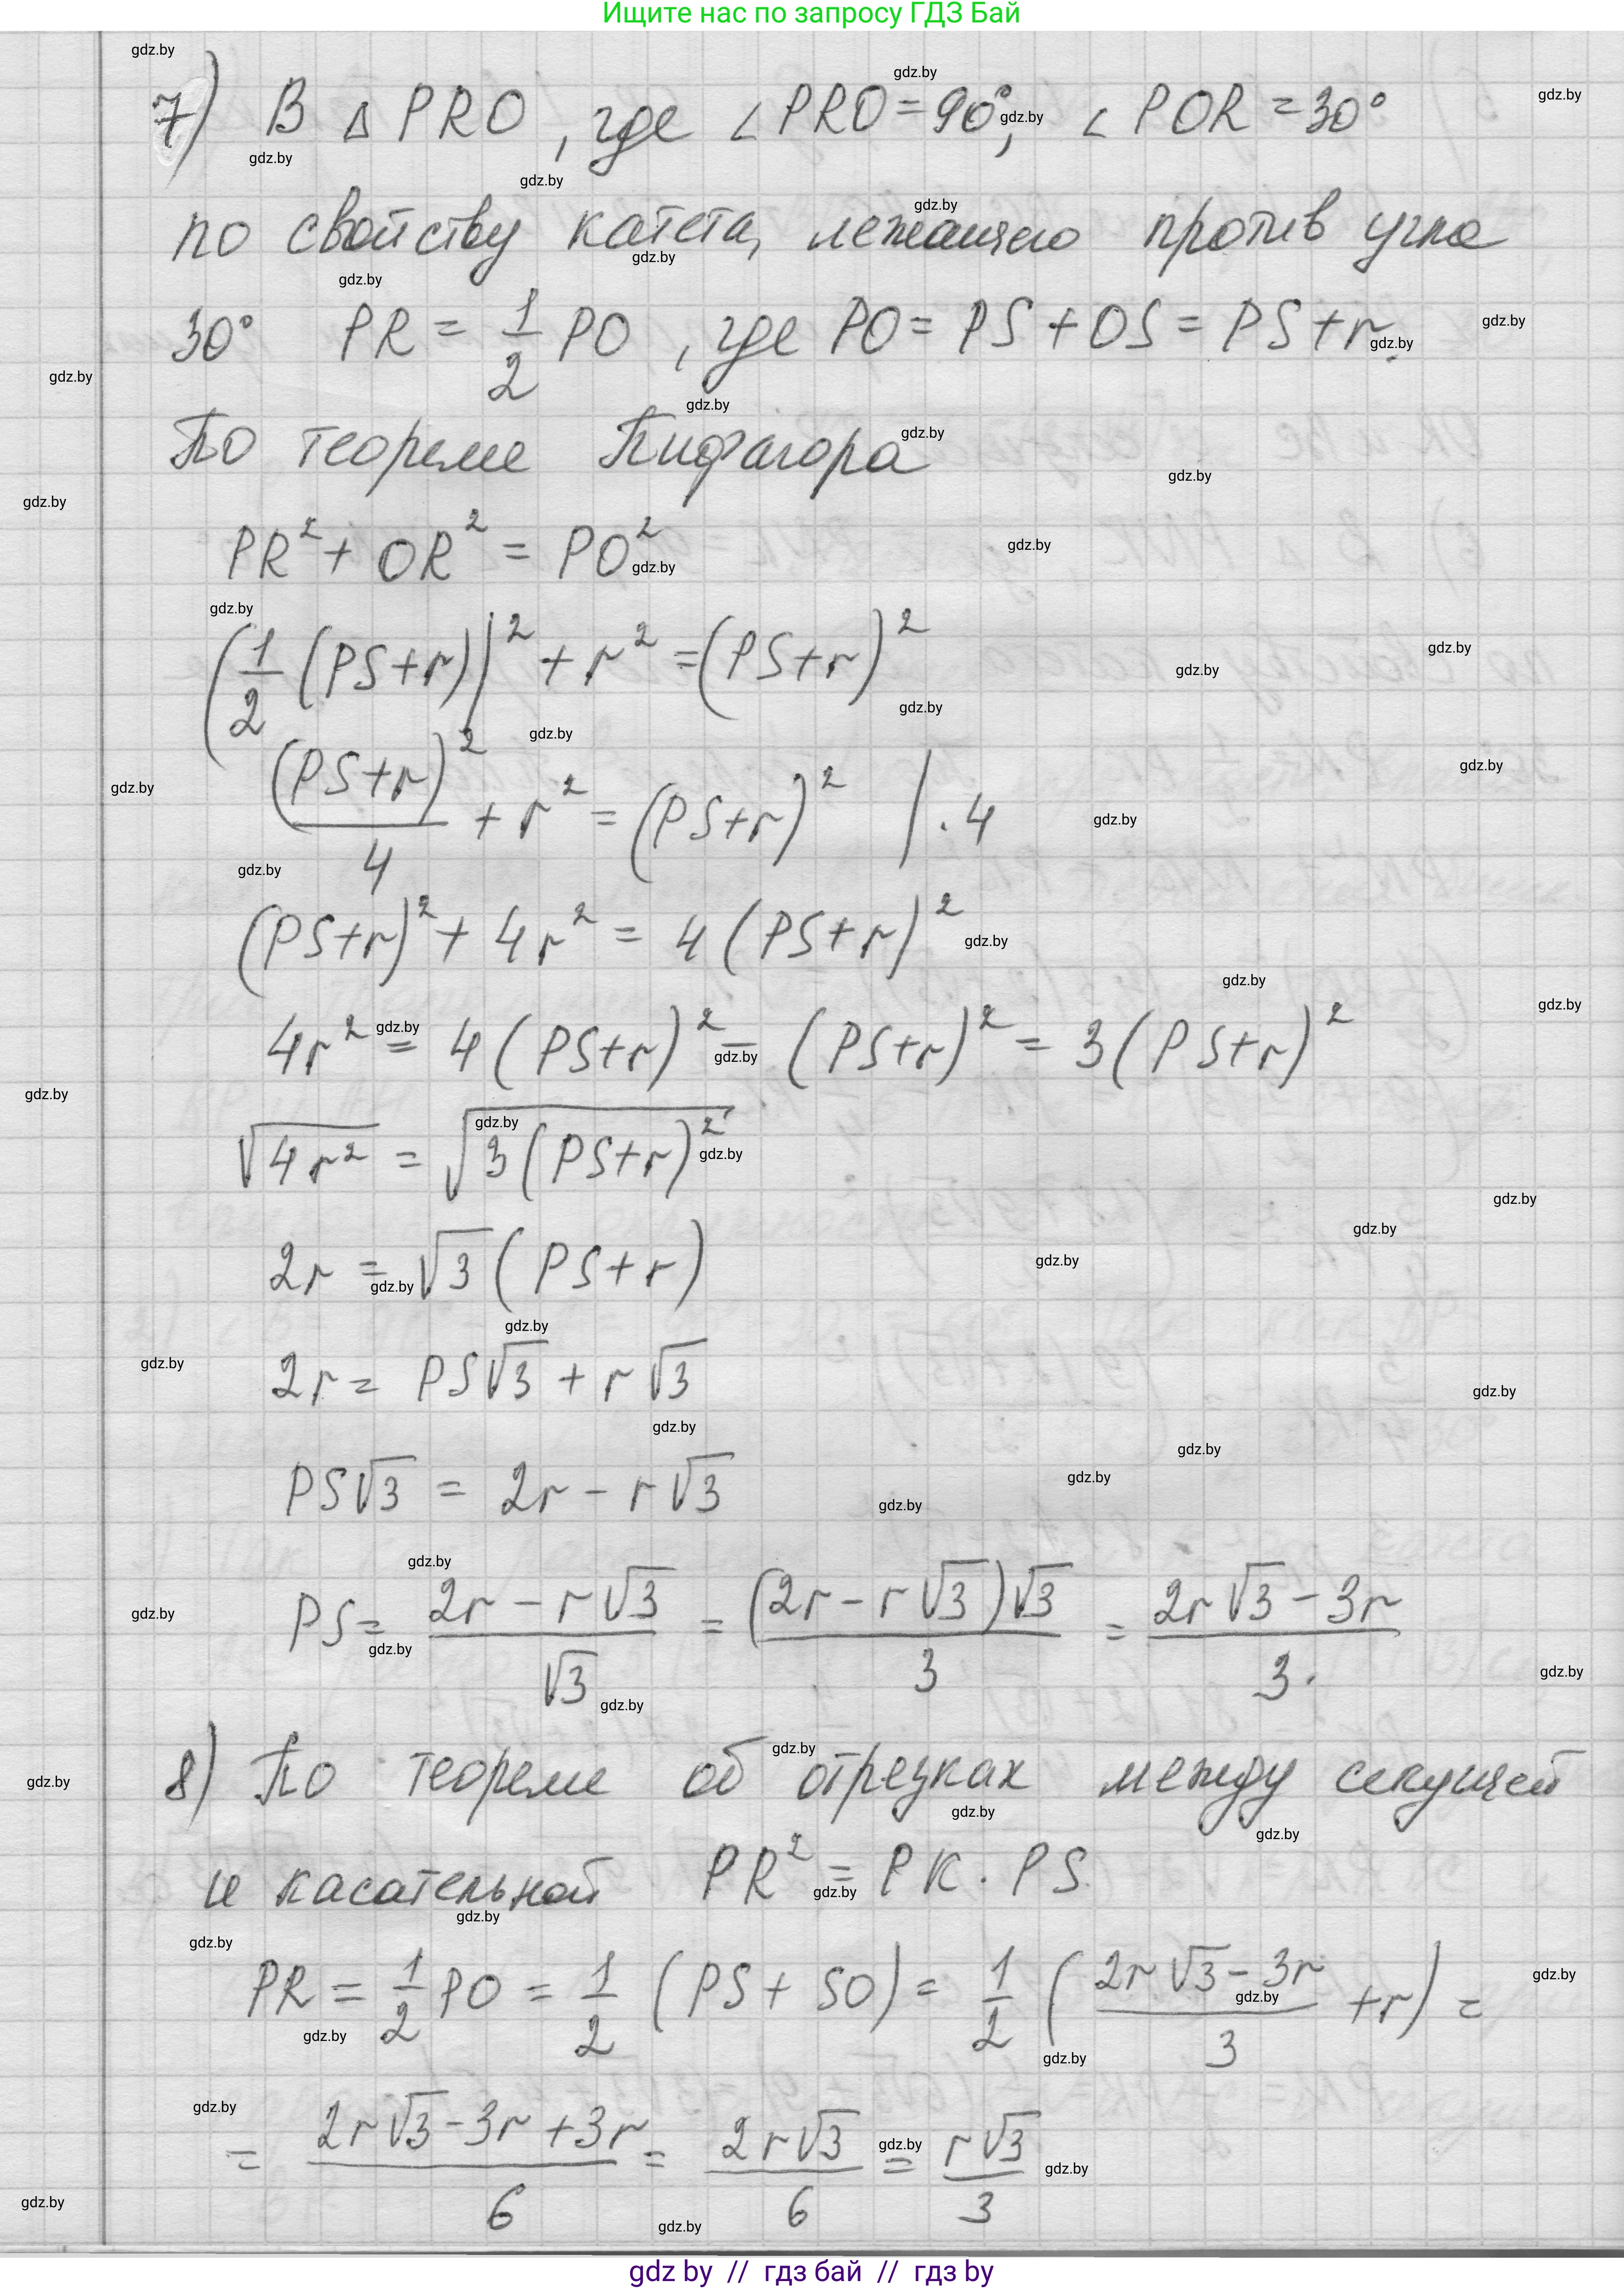 Ищите нас по запросу ГДЗ Бай
7) В △ PRO, где ∠PRO = 90°, ∠POR = 30°
по свойству катета, лежащего против угла
30° PR = 1/2 PO, где PO = PS + OS = PS + r.
По теореме Пифагора
PR² + OR² = PO²
(1/2 (PS+r))² + r² = (PS+r)²
(PS+r)²/4 + r² = (PS+r)² | · 4
(PS+r)² + 4r² = 4(PS+r)²
4r² = 4(PS+r)² − (PS+r)² = 3(PS+r)²
√(4r²) = √(3(PS+r)²)
2r = √3(PS+r)
2r = PS√3 + r√3
PS√3 = 2r − r√3
PS = (2r − r√3)/√3 = ((2r − r√3)√3)/3 = (2r√3 − 3r)/3.
8) По теореме об отрезках между секущей
и касательной PR² = PK · PS
PR = 1/2 PO = 1/2 (PS + SO) = 1/2 ((2r√3 − 3r)/3 + r) =
= (2r√3 − 3r + 3r)/6 = 2r√3/6 = r√3/3
gdz by // гдз бай // гдз by